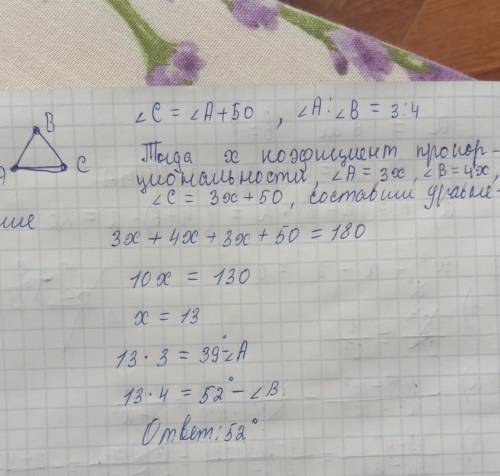 ∠C = ∠A+50 , ∠A:∠B = 3:4
B
A C
Тогда x коэфициент пропор-
циональности, ∠A = 3x, ∠B = 4x,
∠C = 3x+50, составим уравне-
ние
3x + 4x + 3x + 50 = 180
10x = 130
x = 13
13 · 3 = 39°-∠A
13 · 4 = 52° - ∠B
Ответ: 52°